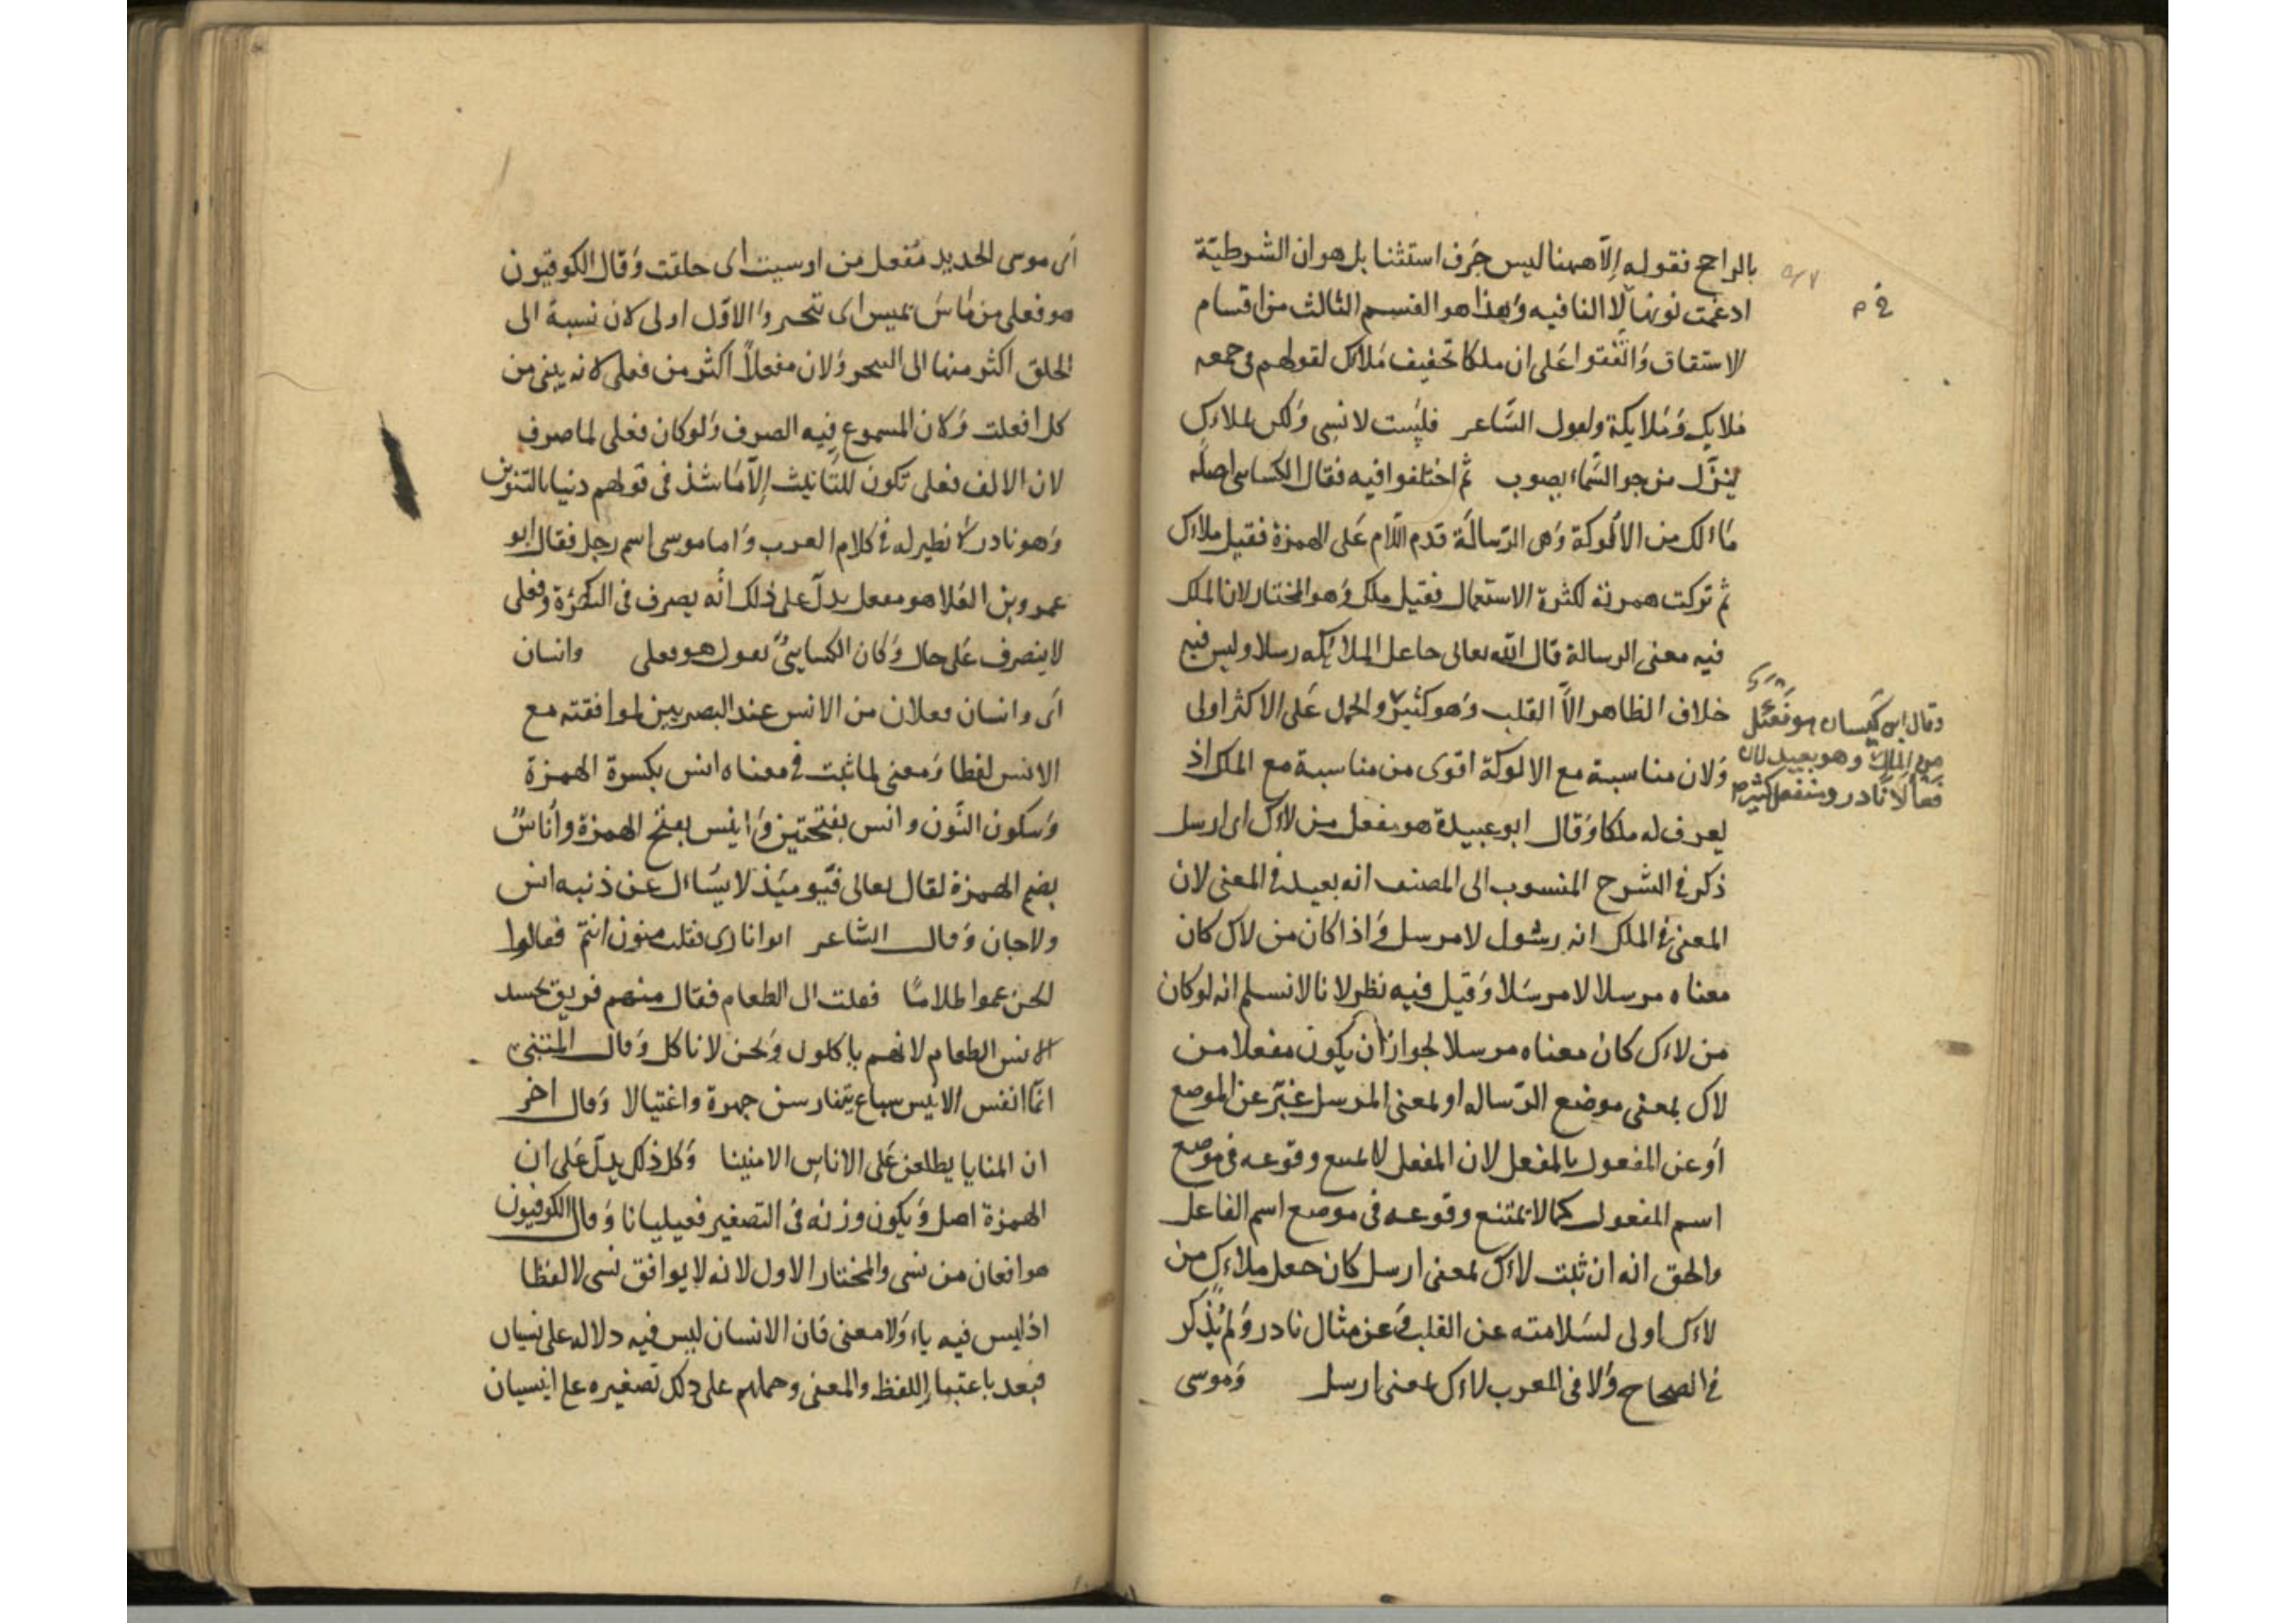 بالراجح فقوله إلّا ههنا ليس حَرف استثنا بل هو ان الشرطيّة
ادغمت نونها لا النافيه وَهذا هو القسم الثالث من اقسام
الاشتقاق وَاتّفقوا عَلى ان ملكا تخفيف مَلاك لقولهم فى جمعه
مَلايك وَمَلايكة ولقول الشّاعر فليست لانسِى وَلكن لملاكٍ
ينزّل من جو السَّماء يصوب ثم اختلفوا فيه فقال الكساى اصله
مَاالك من الالُوكة وَهى الرّسالَة قدم اللّام عَلى الهمزة فقيل ملاك
ثم تركت همزته لكثرة الاستعمال فقيل ملك وَهو المختار لان الملك
فيه معنى الرسالة قال اللّه تعالى جاعل الملايكه رسلا وليس فيه
خلاف الظاهر الاّ القلب وَهو كثيرٌ والحمل عَلى الاكثر اولى
وَلان مناسبة مع الالوكة اقوى من مناسبة مع الملك اذ
يعرف له ملكا وَقال ابو عبيدة هو مفعل من لاك اى ارسل
ذكر فى الشرح المنسوب الى المصنف انه بعيد فى المعنى لان
المعنى فى الملك انه رسُول لا مرسل وَاذا كان من لاك كان
معناه مرسلا لا مرسَلا وَقيل فيه نظر لانا لا نسلم انه لو كان
من لاك كان معناه مرسلا لجواز ان يكون مفعلا من
لاك بمعنى موضع الرّساله او لمعنى المرسل عَبّر عن الموضع
اَو عن المفعول بالمفعل لان المفعل لا يمتنع وقوعه فى موضع
اسم المفعول كما لا يمتنع وقوعه فى موضع اسم الفاعل
والحق انه ان ثبت لاك بمعنى ارسل كان جعل ملاك من
لاك اولى لسَلامته عن القلب وَعن مثال نادر وَلم يُذكر
فى الصحاح وَلا فى المعرب لاك بمعنى ارسل وَموسى
وقال ابن كَيسان هو فَعْئَل
من المِلك وهو بعيد لان
فعألا نادر ومفعل كثير م
اَى موسى الحديد مُفعل من اوسيت اى حلقت وَقال الكوفيون
هو فعلى من مَاسَ يميس اى تبختر وَالاوّل اولى لان نسبة الى
الحلق اكثر منها الى التبختر وَلان مفعلاً اكثر من فعلى لانه يبنى من
كل افعلت وَكان المسموع فيه الصرف وَلو كان فعلى لما صرف
لان الالف فعلى تكون للتّانيث إلاّ مَا شذ فى قولهم دنيا بالتنوين
وَهو نادر لا نظير له فى كلام العرب وَاما موسى اسم رجل فقال ابو
عمرو بن العَلا هو مفعل يدلّ على ذلك انّه يصرف فى النكرَة وفعلى
لا ينصرف عَلى حال وَكان الكساىُّ يقول هو فعلى وانسان
اَى وانسان فعلان من الانس عند البصريين لموافقته مع
الانس لفظا وَمعنى لما ثبت فى معناه انس بكسرة الهمزة
وَسكون النّون وانس بفتحتين وَانِيس بفتح الهمزة وأُناسٌ
بضم الهمزة لقال تعالى فَيَوميَذ لا يسُاال عن ذنبه انس
ولا جان وَقال الشّاعر اتوا نارى فقلت منون انتمّ فقالوا
الجن عموا ظلامًا فقلت الى الطعام فقال منهم فريق تحسد
الانس الطعام لانهم ياكلون وَنحن لا ناكل وَقال المتنبى
انّما انفس الانيس سباع يتفارسن جهرة واغتيالا وَقال اخر
ان المنايا يطلعن عَلى الاناس الامنينا وَكل ذلك يدلّ عَلى ان
الهمزة اصل وَيكون وزنه فى التصغير فعيليانا وَقال الكوفيون
هو افعان من نسى والمختار الاول لانه لا يوافق نسى لا لفظا
اذ ليس فيه ياء وَلا معنى فان الانسان ليس فيه دلاله على نسيان
فبعد باعتبار اللفظ والمعنى وحملهم على ذلك تصغيره على انيسيان